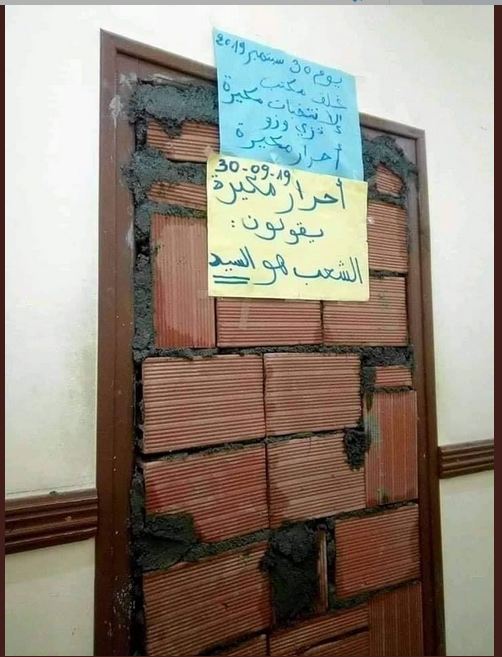 يوم 30 سبتمبر 2019
غلق مكتب
الإنتخبات مكيرة
تيزي وزو
أحرار مكيرة
30-09-19
أحرار مكيرة
يقولون :
الشعب هو السيد